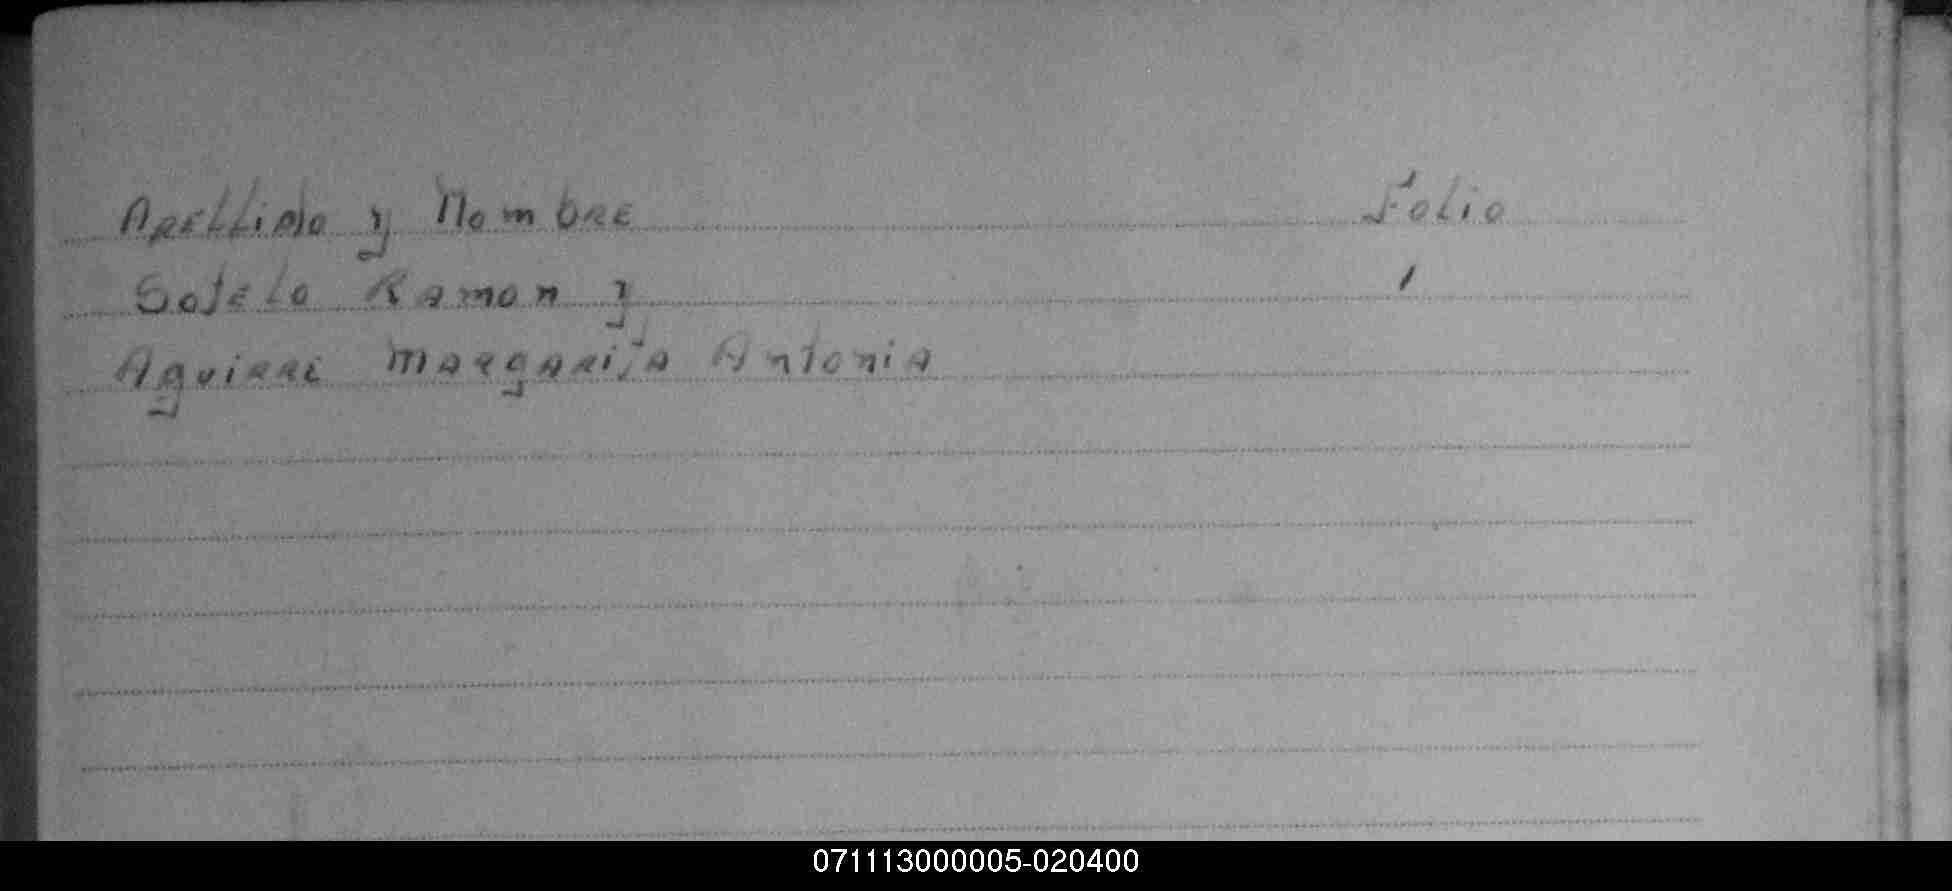 Apellido y Nombre Folio
Sotelo Ramon y 1
Aguirre Margarita Antonia
071113000005-020400